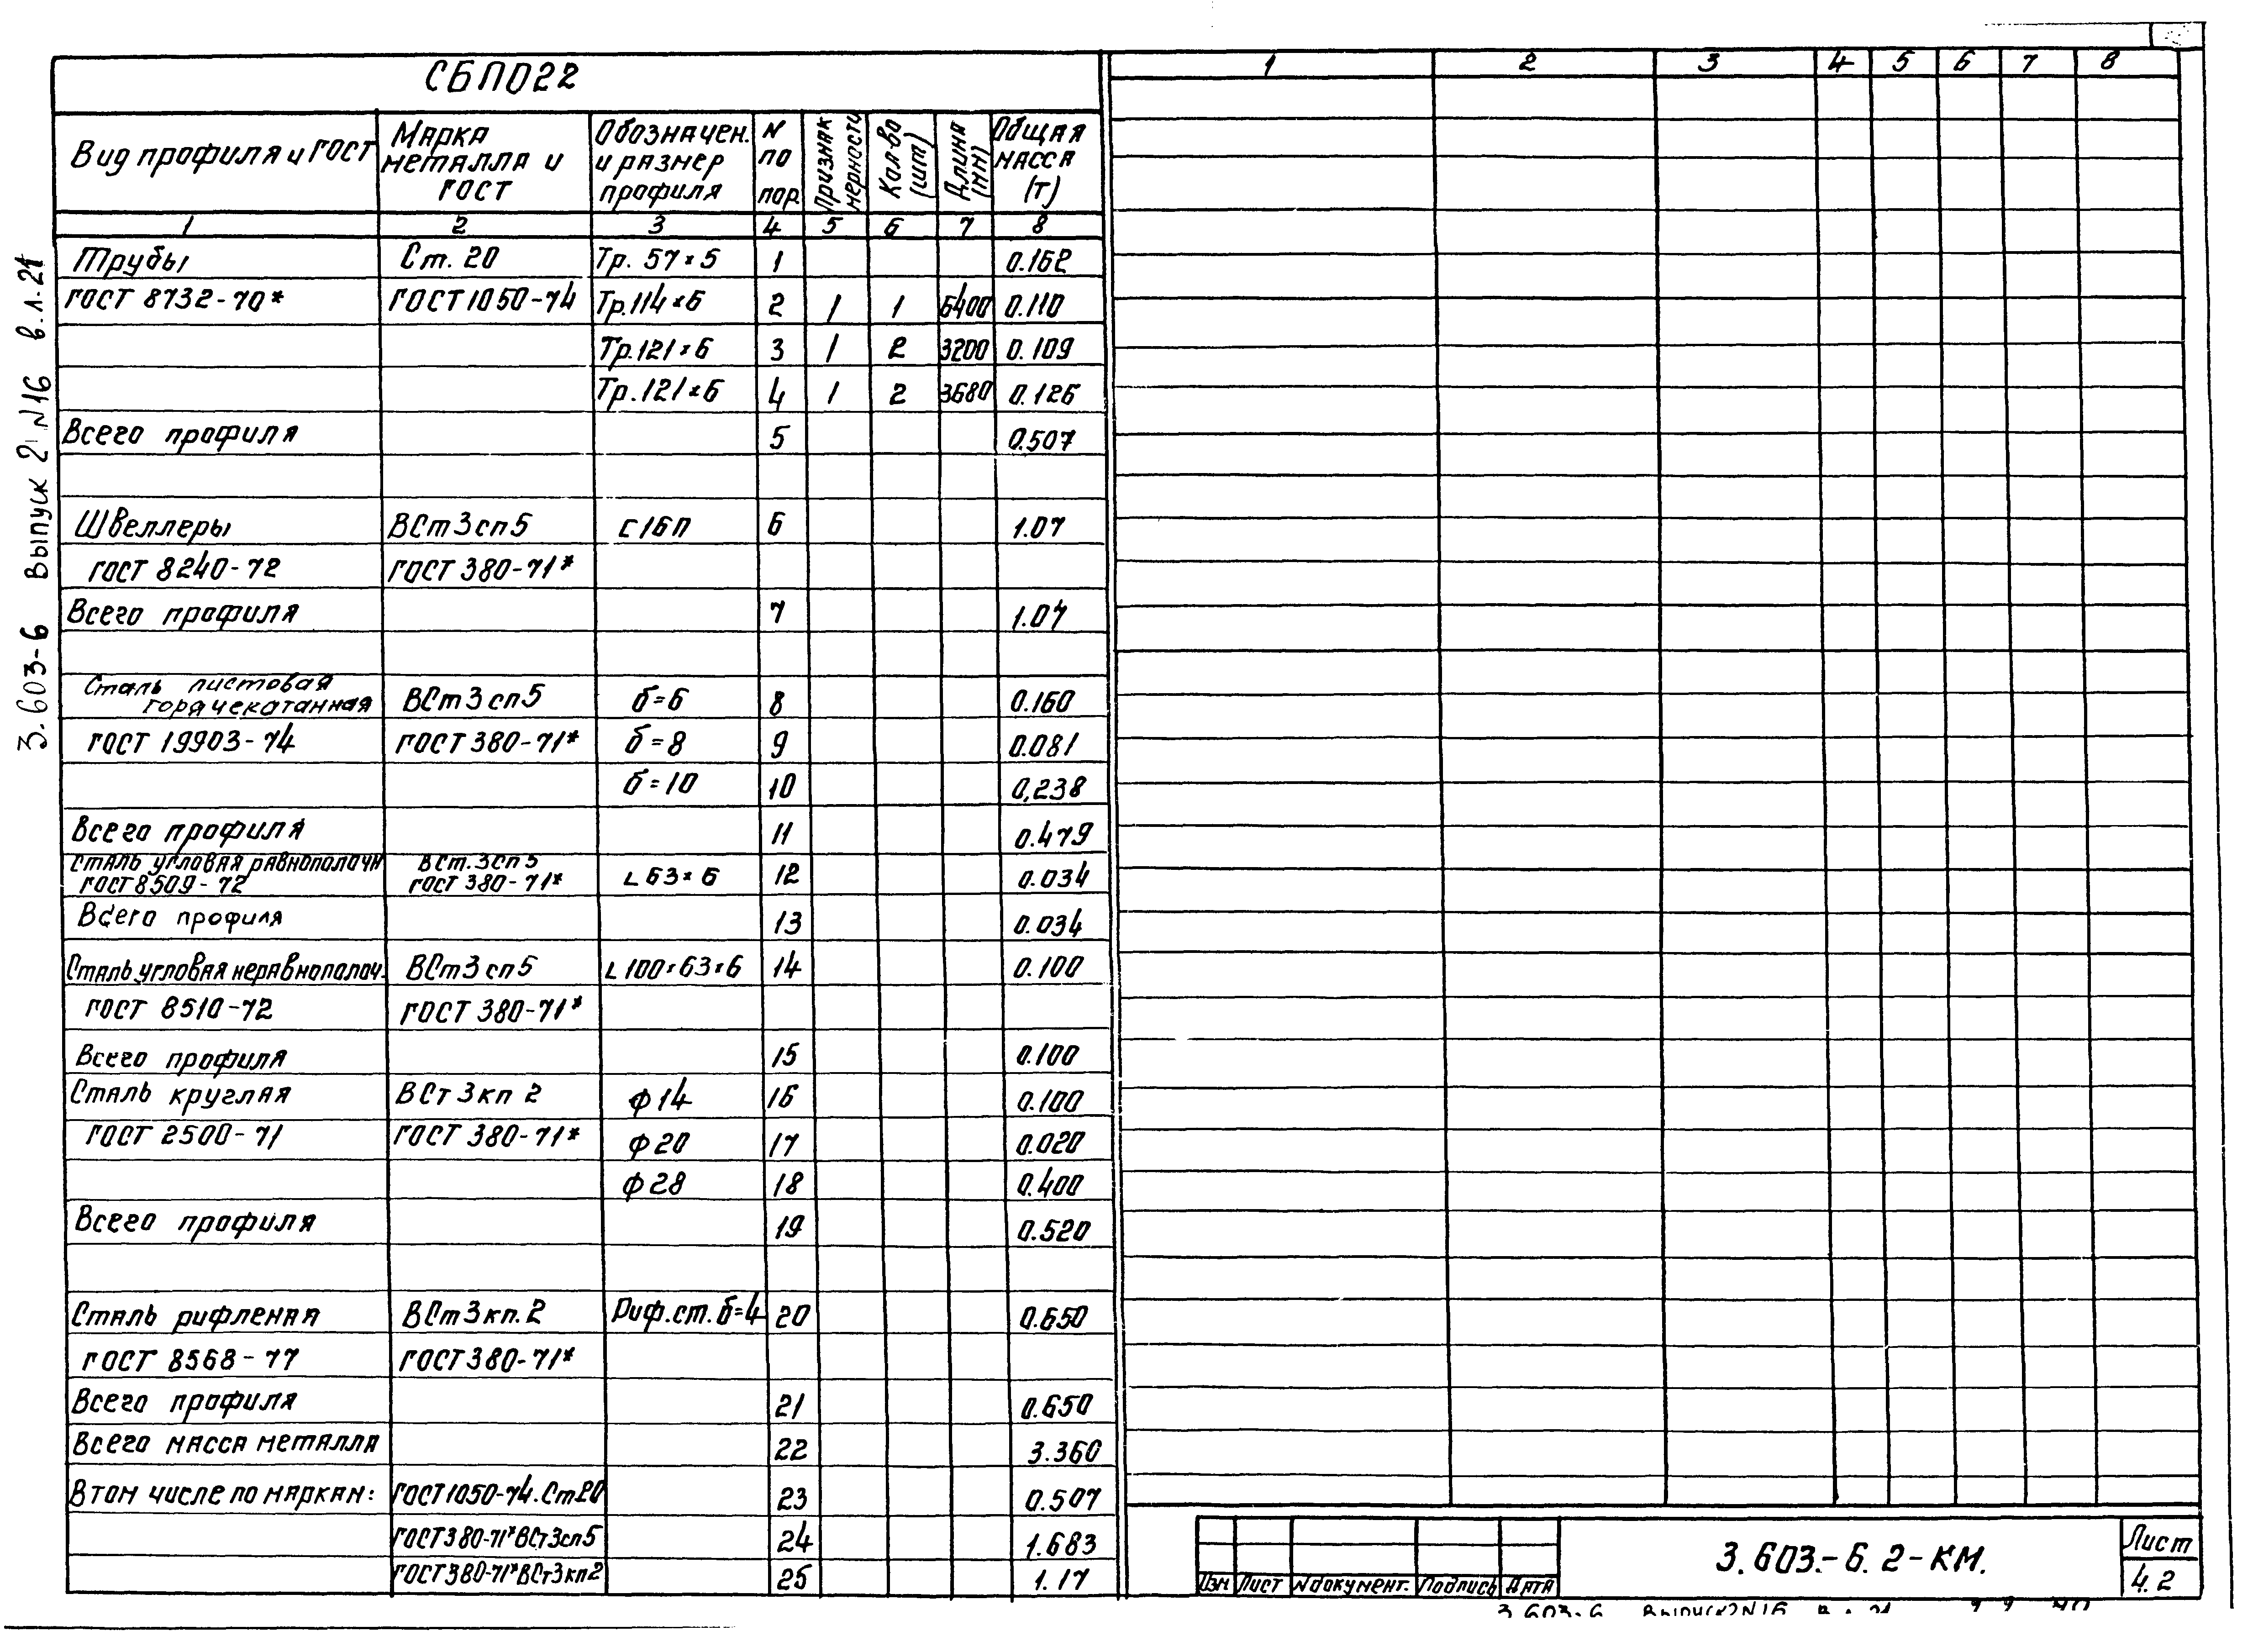 СБПО22
Вид профиля и ГОСТ | Марка металла и ГОСТ | Обозначен. и размер профиля | N по пор. | Признак мерности | Кол-во (шт) | Длина (мм) | Общая масса (т)
1 | 2 | 3 | 4 | 5 | 6 | 7 | 8
Трубы | Ст. 20 | Тр. 57×5 | 1 | 0.162
ГОСТ 8732-70* | ГОСТ 1050-74 | Тр.114×6 | 2 | 1 | 1 | 6400 | 0.110
Тр.121×6 | 3 | 1 | 2 | 3200 | 0.109
Тр.121×6 | 4 | 1 | 2 | 3680 | 0.126
Всего профиля | 5 | 0.507
Швеллеры | ВСт3сп5 | С16П | 6 | 1.07
ГОСТ 8240-72 | ГОСТ 380-71*
Всего профиля | 7 | 1.07
Сталь листовая горячекатанная | ВСт3сп5 | б=6 | 8 | 0.160
ГОСТ 19903-74 | ГОСТ 380-71* | б=8 | 9 | 0.081
б=10 | 10 | 0,238
Всего профиля | 11 | 0.479
Сталь угловая равнополочн ГОСТ 8509-72 | ВСт.3сп5 ГОСТ 380-71* | L 63×6 | 12 | 0.034
Всего профиля | 13 | 0.034
Сталь угловая неравнополоч. | ВСт3сп5 | L 100×63×6 | 14 | 0.100
ГОСТ 8510-72 | ГОСТ 380-71*
Всего профиля | 15 | 0.100
Сталь круглая | ВСт3кп 2 | Ф14 | 16 | 0.100
ГОСТ 2500-71 | ГОСТ 380-71* | Ф20 | 17 | 0.020
Ф28 | 18 | 0.400
Всего профиля | 19 | 0.520
Сталь рифленая | ВСт3кп.2 | Риф.ст.б=4 | 20 | 0.650
ГОСТ 8568-77 | ГОСТ 380-71*
Всего профиля | 21 | 0.650
Всего масса металла | 22 | 3.360
В том числе по маркам: | ГОСТ1050-74.Ст20 | 23 | 0.507
ГОСТ380-71*ВСт3сп5 | 24 | 1.683
ГОСТ380-71*ВСт3кп2 | 25 | 1.17
1 | 2 | 3 | 4 | 5 | 6 | 7 | 8
3.603-6 Выпуск 2 N16 в.л.21
Изм | Лист | N документ. | Подпись | Дата
3.603.-6.2-КМ.
Лист
4.2
3.603-6 Выпуск2N16